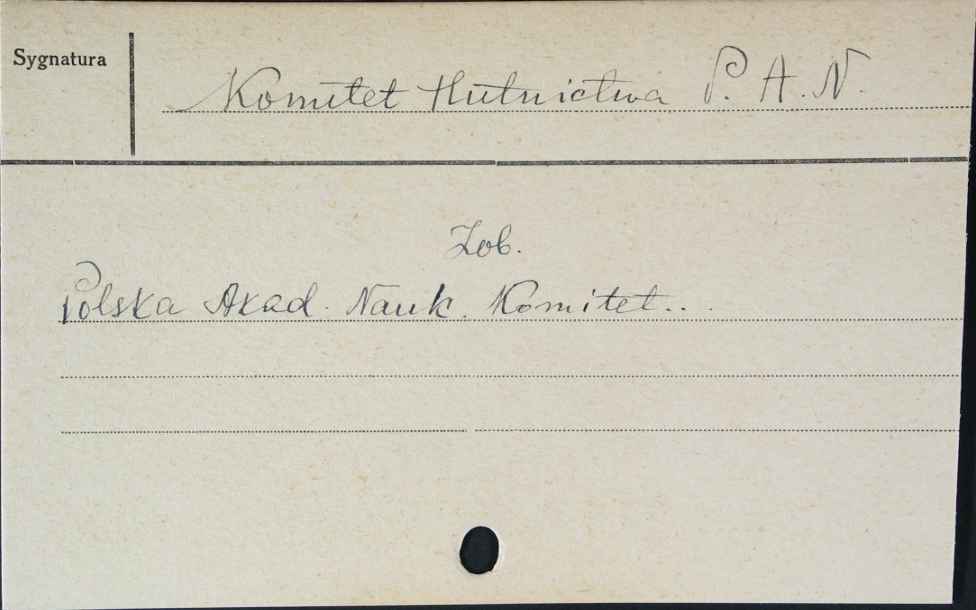 Sygnatura
Komitet Hutnictwa P. A. N.
Zob.
Polska Akad. Nauk. Komitet...